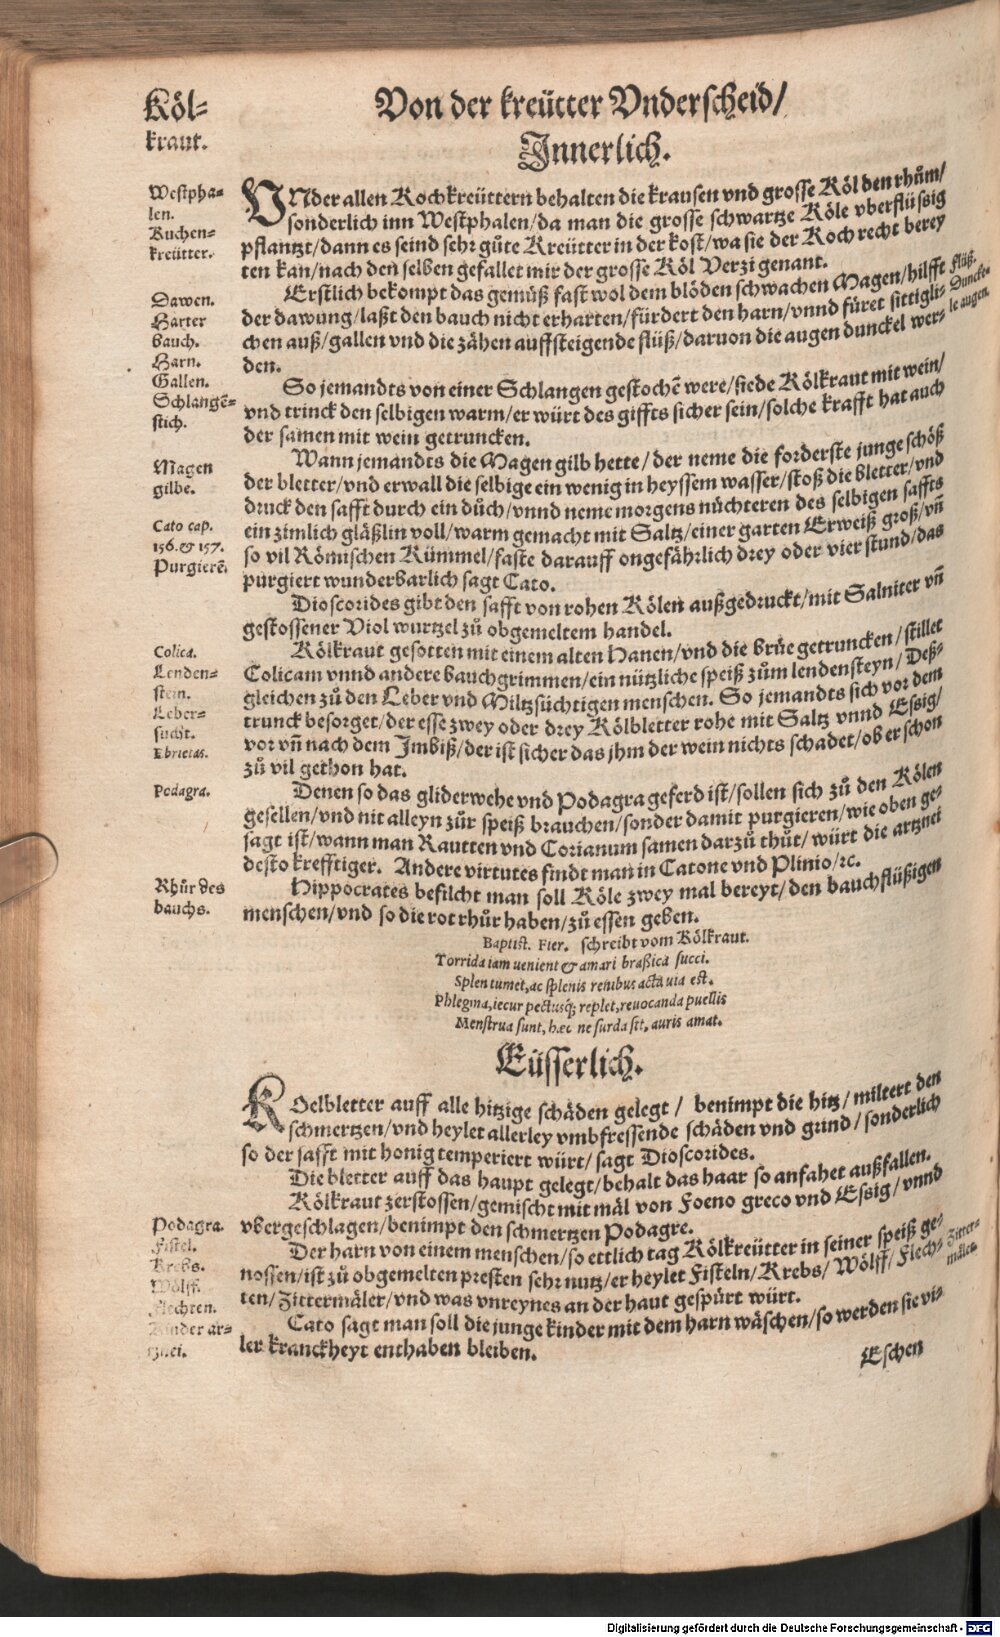 Von der kreütter Vnderscheid/
Köl=
kraut.
Innerlich.
Westpha=
len.
Kuchen=
kreütter.
VNder allen Kochkreüttern behalten die krausen vnd grosse Köl den rhům/
sonderlich inn Westphalen/da man die grosse schwartze Köle vberflüssig
pflantzt/dann es seind sehr gůte Kreütter in der kost/wa sie der Koch recht berey
ten kan/nach den selben gefallet mir der grosse Köl Verzi genant.
Dawen.
Harter
bauch.
Harn.
Gallen.
Flüß.
Duncke=
le augen.
Erstlich bekompt das gemüß fast wol dem blöden schwachen Magen/hilfft
der dawung/laßt den bauch nicht erharten/fürdert den harn/vnnd füret sittigli=
chen auß/gallen vnd die zähen auffsteigende flüß/daruon die augen dunckel wer=
den.
Schlangē=
stich.
So jemandts von einer Schlangen gestochē were/siede Kölkraut mit wein/
vnd trinck den selbigen warm/er würt des giffts sicher sein/solche krafft hat auch
der samen mit wein getruncken.
Magen
gilbe.
Cato cap.
156.& 157.
Purgierē.
Wann jemandts die Magen gilb hette/der neme die forderste junge schöß
der bletter/vnd erwall die selbige ein wenig in heyssem wasser/stoß die bletter/vnd
druck den safft durch ein důch/vnnd neme morgens nüchteren des selbigen saffts
ein zimlich gläßlin voll/warm gemacht mit Saltz/einer garten Erweiß groß/vñ
so vil Römischen Kümmel/faste darauff ongefährlich drey oder vier stund/das
purgiert wunderbarlich sagt Cato.
Dioscorides gibt den safft von rohen Kölen außgedruckt/mit Salniter vñ
gestossener Viol wurtzel zů obgemeltem handel.
Colica.
Lenden=
stein.
Leber=
sucht.
Ebrietas.
Kölkraut gesotten mit einem alten Hanen/vnd die brüe getruncken/stillet
Colicam vnnd andere bauchgrimmen/ein nützliche speiß zům lendensteyn/Deß=
gleichen zů den Leber vnd Miltzsüchtigen menschen. So jemandts sich vor dem
trunck besorget/der esse zwey oder drey Kölbletter rohe mit Saltz vnnd Essig/
vor vñ nach dem Imbiß/der ist sicher das jhm der wein nichts schadet/ob er schon
zů vil gethon hat.
Podagra.
Denen so das gliderwehe vnd Podagra geferd ist/sollen sich zů den Kölen
gesellen/vnd nit alleyn zůr speiß brauchen/sonder damit purgieren/wie oben ge=
sagt ist/wann man Rautten vnd Corianum samen darzů thůt/würt die artznei
desto krefftiger. Andere virtutes findt man in Catone vnd Plinio/ꝛc.
Rhůr des
bauchs.
Hippocrates befilcht man soll Köle zwey mal bereyt/den bauchflüßigen
menschen/vnd so die rot rhůr haben/zů essen geben.
Baptist. Fier. schreibt vom Kölkraut.
Torrida iam uenient & amari braßica succi.
Splen tumet, ac splenis renibus acta uia est.
Phlegma, iecur pectusq́; replet, reuocanda puellis
Menstrua sunt, hæc ne surda sit, auris amat.
Eüsserlich.
KOelbletter auff alle hitzige schäden gelegt / benimpt die hitz/miltert den
schmertzen/vnd heylet allerley vmbfressende schäden vnd grind/sonderlich
so der safft mit honig temperiert würt/sagt Dioscorides.
Die bletter auff das haupt gelegt/behalt das haar so anfahet außfallen.
Podagra.
Kölkraut zerstossen/gemischt mit mäl von Foeno greco vnd Essig/vnnd
vbergeschlagen/benimpt den schmertzen Podagre.
Fistel.
Krebs.
Wölff.
Flechten.
Zitter=
mäler.
Der harn von einem menschen/so ettlich tag Kölkreütter in seiner speiß ge=
nossen/ist zů obgemelten presten sehr nutz/er heylet Fisteln/Krebs/Wölff/Flech=
ten/Zittermäler/vnd was vnreynes an der haut gespürt würt.
Kinder ar=
tznei.
Cato sagt man soll die junge kinder mit dem harn wäschen/so werden sie vi=
ler kranckheyt enthaben bleiben.
Eschen
Digitalisierung gefördert durch die Deutsche Forschungsgemeinschaft - DFG